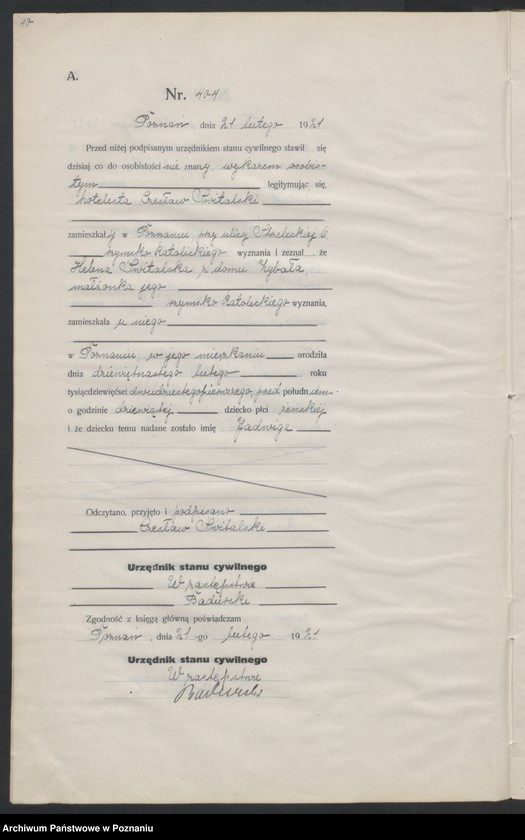 10
A.
Nr. 404
Poznań, dnia 21 lutego 1921
Przed niżej podpisanym urzędnikiem stanu cywilnego stawił się
dzisiaj co do osobistości nie znany, wykazem osobis-
tym legitymując się,
hotelista Czesław Świtalski
zamieszkały w Poznaniu przy ulicy Strzeleckiej 6
rzymsko katolickiego wyznania i zeznał, że
Helena Świtalska z domu Zybała,
małżonka jego
rzymsko katolickiego wyznania,
zamieszkała u niego
w Poznaniu w jego mieszkaniu urodziła
dnia dziewiętnastego lutego roku
tysiącdziewięćset dwudziestegopierwszego, przed południem
o godzinie dziewiątej dziecko płci żeńskiej
i że dziecku temu nadane zostało imię Jadwiga
Odczytano, przyjęto i podpisano
Czesław Świtalski
Urzędnik stanu cywilnego
W zastępstwie
Badurski
Zgodność z księgą główną poświadczam
Poznań, dnia 21-go lutego 1921
Urzędnik stanu cywilnego
W zastępstwie
Badurski
Archiwum Państwowe w Poznaniu